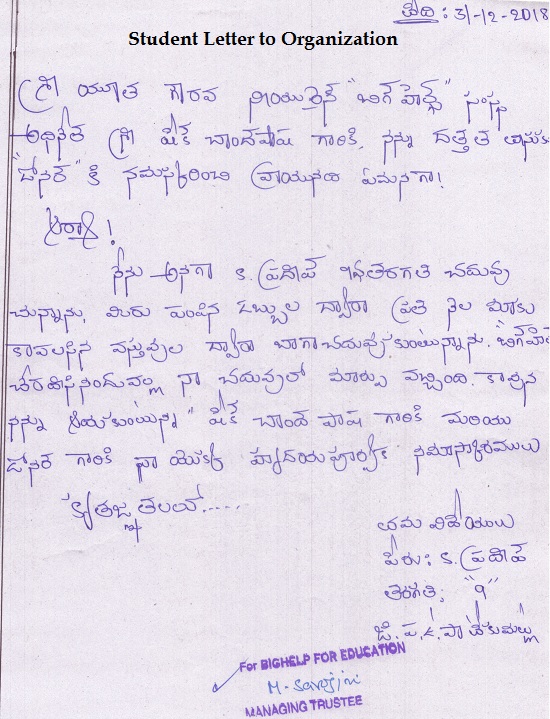 తేది : 31-12-2018
Student Letter to Organization
శ్రీ యూత గౌరవ "బిగ్ హెల్ప్" సంస్థ
అధినేత శ్రీ షేక్ చాంద్ పాష గారికి, నన్ను దత్తత
"డోనర్" కి నమస్కరించి వ్రాయునది ఏమనగా!
ఆర్యా!
నేను అనగా క. ప్రదీప్ చదువు
చున్నాను, మీరు పంపిన డబ్బుల ద్వారా ప్రతి నెల మాకు
కావలసిన వస్తువుల ద్వారా బాగా చదువుకుంటున్నాను.
నా చదువులో మార్పు వచ్చింది. కావున
నన్ను షేక్ చాంద్ పాష గారికి మరియు
డోనర్ గారికి నా యొక్క హృదయపూర్వక నమాస్కారములు
కృతజ్ఞతలలో.....
తమ విధేయులు
పేరు: క. ప్రదీప్
తరగతి: "9"
జి. ప. ఉ. పా
For BIGHELP FOR EDUCATION
M. Sarojini
MANAGING TRUSTEE